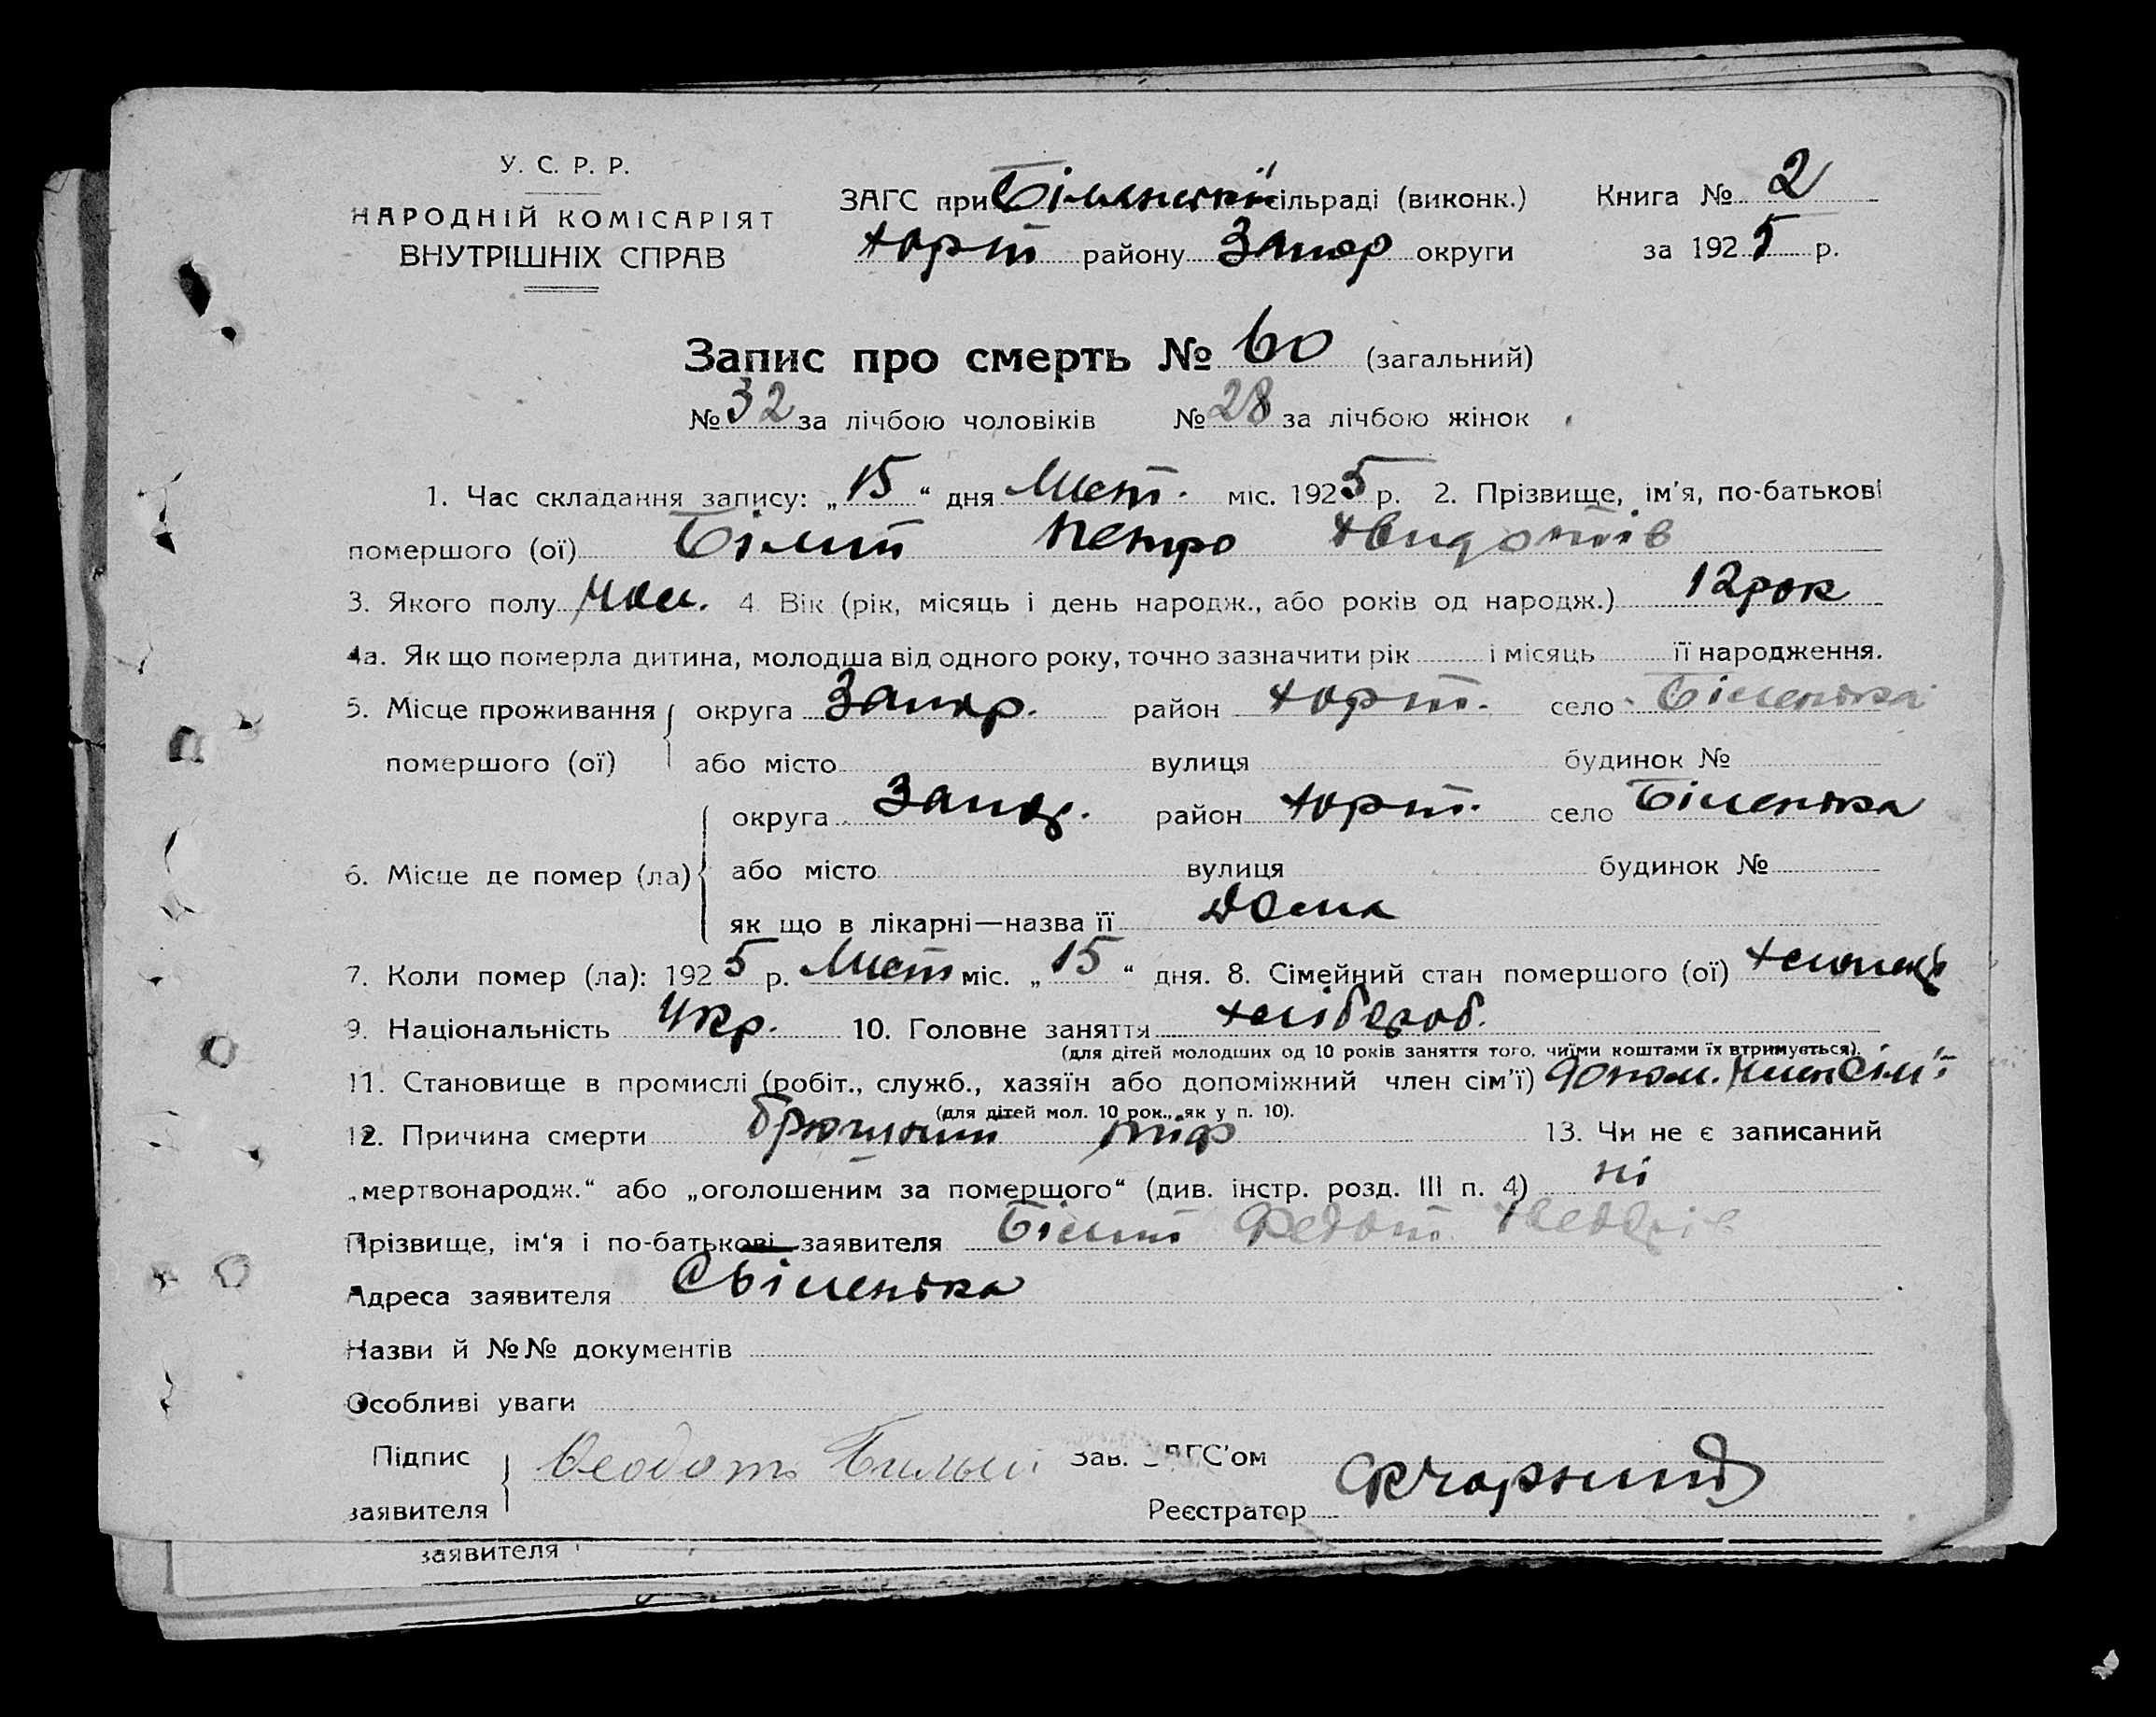 У. С. Р. Р.
НАРОДНІЙ КОМІСАРІЯТ
ВНУТРІШНІХ СПРАВ
ЗАГС при Біленській сільраді (виконк.)
Хорт району Запор округи
Книга № 2
за 1925 р.
Запис про смерть № 60 (загальний)
№ 32 за лічбою чоловіків № 28 за лічбою жінок
1. Час складання запису: „15“ дня Лист. міс. 1925 р. 2. Прізвище, ім'я, по-батькові
помершого (ої) Білий Петро
3. Якого полу Чол. 4. Вік (рік, місяць і день народж., або років од народж.) 12 рок
4а. Як що померла дитина, молодша від одного року, точно зазначити рік і місяць її народження.
5. Місце проживання помершого (ої) округа Запор. район Хорт. село Біленька
або місто вулиця будинок №
6. Місце де помер (ла) округа Запор. район Хорт. село Біленька
або місто вулиця будинок №
як що в лікарні—назва її Дома
7. Коли помер (ла): 1925 р. Лист міс. „15“ дня. 8. Сімейний стан помершого (ої) хлопець
9. Національність Укр. 10. Головне заняття хлібороб.
(для дітей молодших од 10 років заняття того, чиїми коштами їх втримується).
11. Становище в промислі (робіт., служб., хазяїн або допоміжний член сім'ї) допом. член сім'ї
(для дітей мол. 10 рок., як у п. 10).
12. Причина смерти брюшний тіф 13. Чи не є записаний
„мертвонародж.“ або „оголошеним за помершого“ (див. інстр. розд. III п. 4) ні
Прізвище, ім'я і по-батькові заявителя Білий Федот
Адреса заявителя С Біленька
Назви й №№ документів
Особливі уваги
Підпис заявителя Феодотъ Билый
Зав. ЗАГС'ом
Реєстратор
заявителя